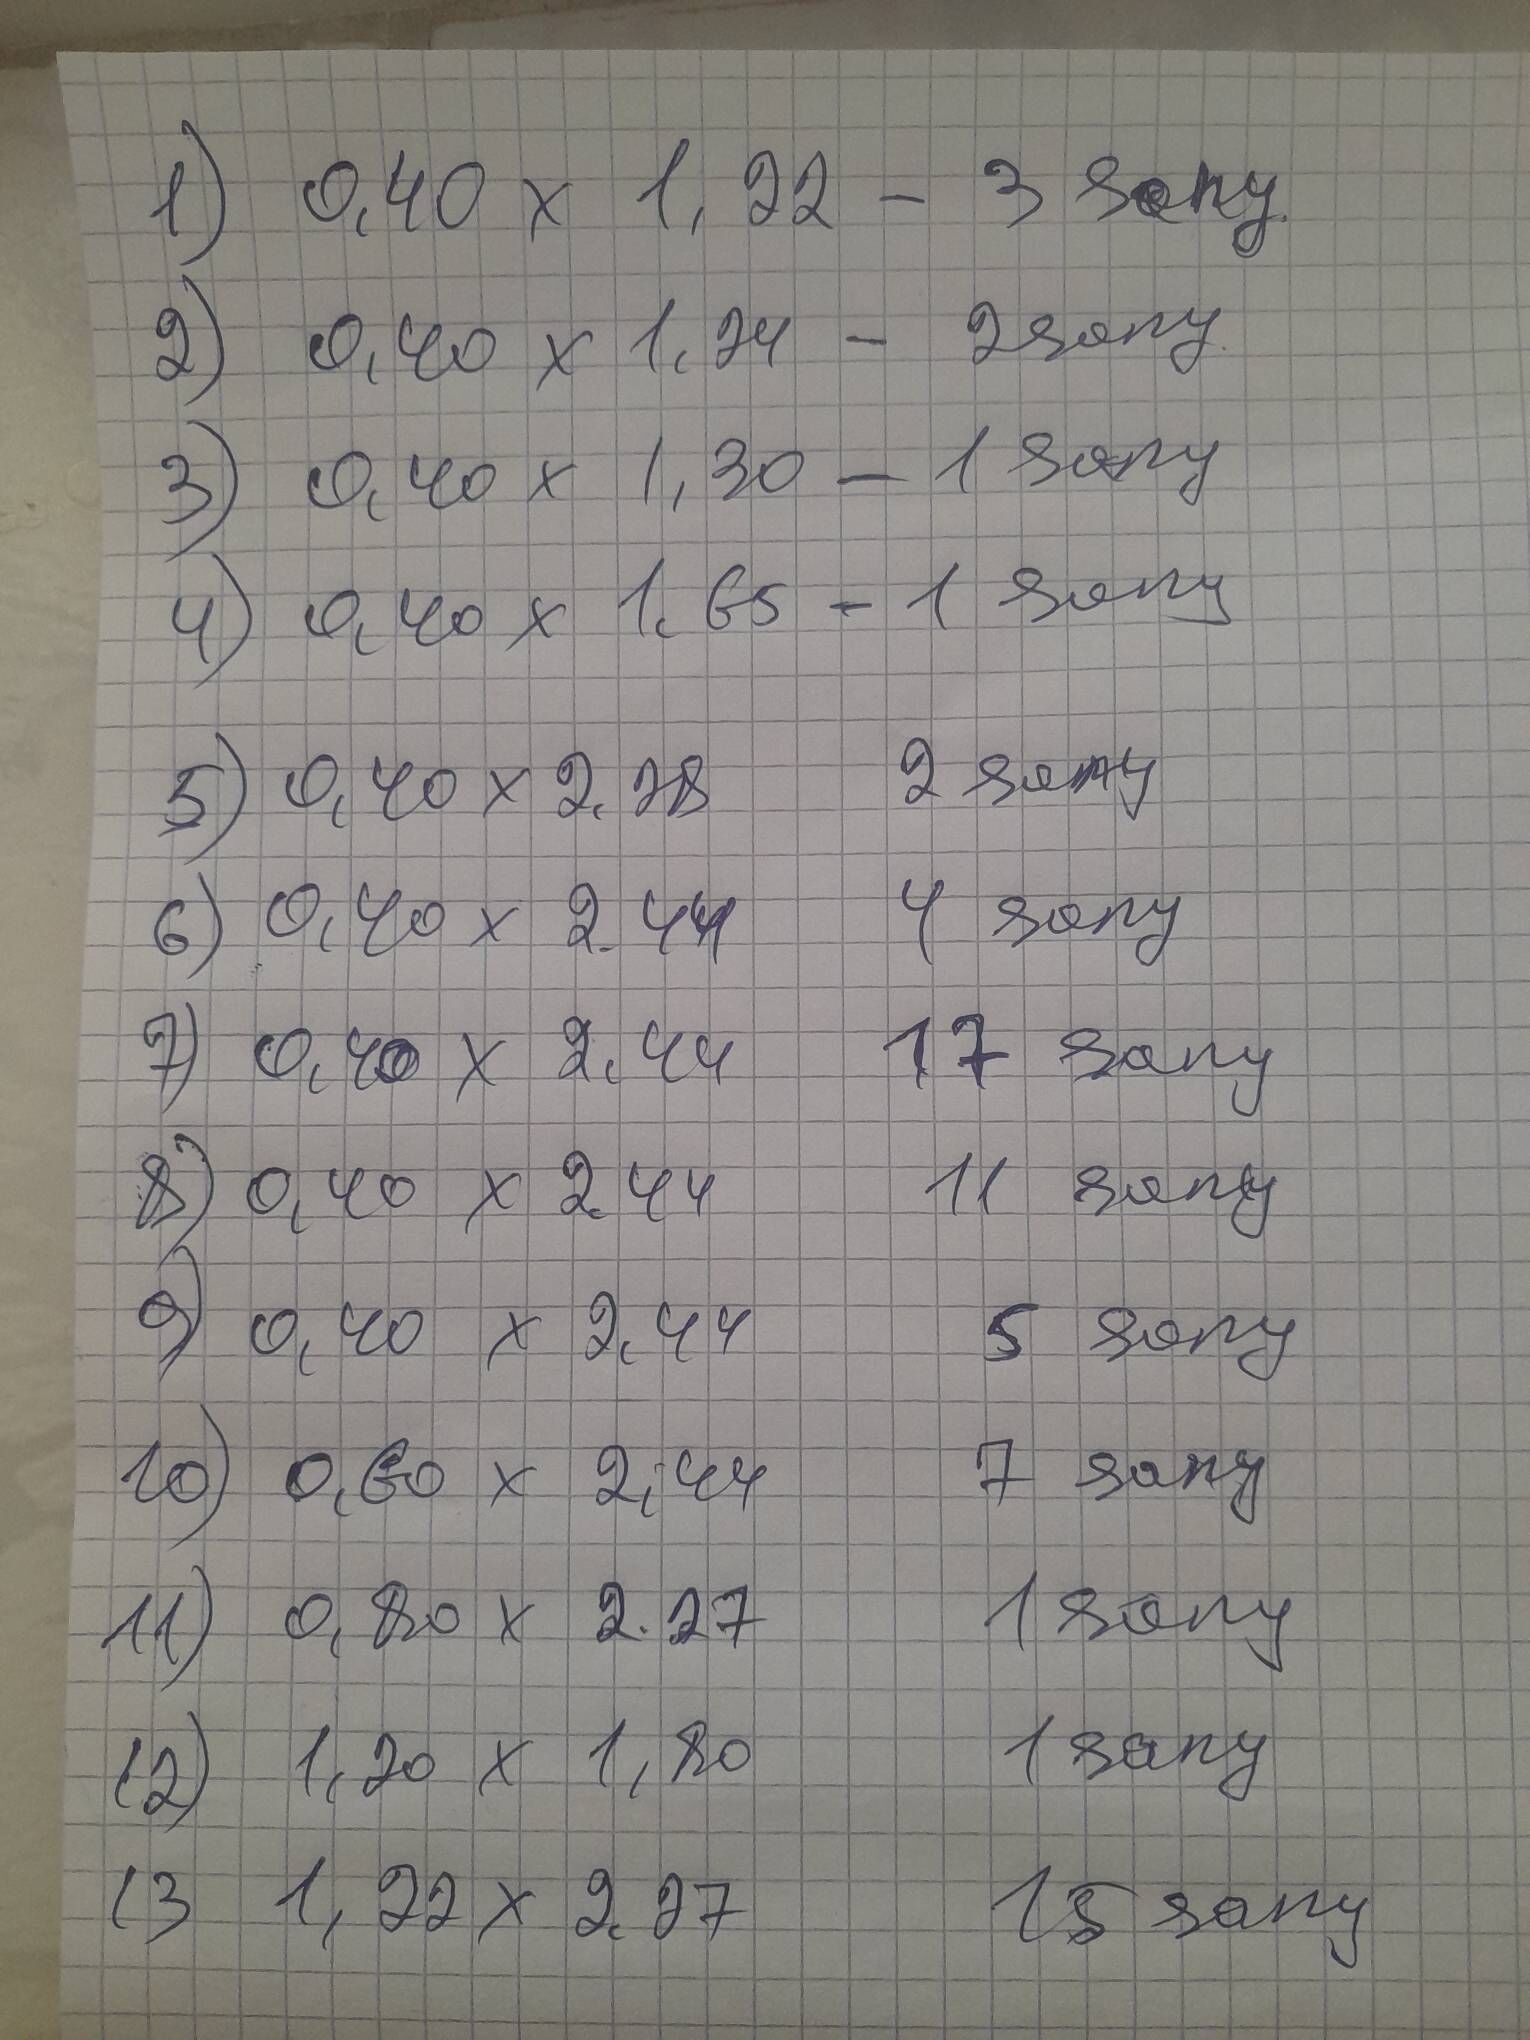 1) 0,40 x 1,22 - 3 sany.
2) 0,40 x 1.24 - 2 sany.
3) 0,40 x 1,30 - 1 sany
4) 0,40 x 1.65 - 1 sany
5) 0,40 x 2.28 2 sany
6) 0,40 x 2.44 4 sany
7) 0,40 x 2.44 17 sany
8) 0,40 x 2.44 11 sany
9) 0,40 x 2.44 5 sany
10) 0,60 x 2,44 7 sany
11) 0,80 x 2.27 1 sany
12) 1,20 x 1,80 1 sany
13 1,22 x 2.27 15 sany